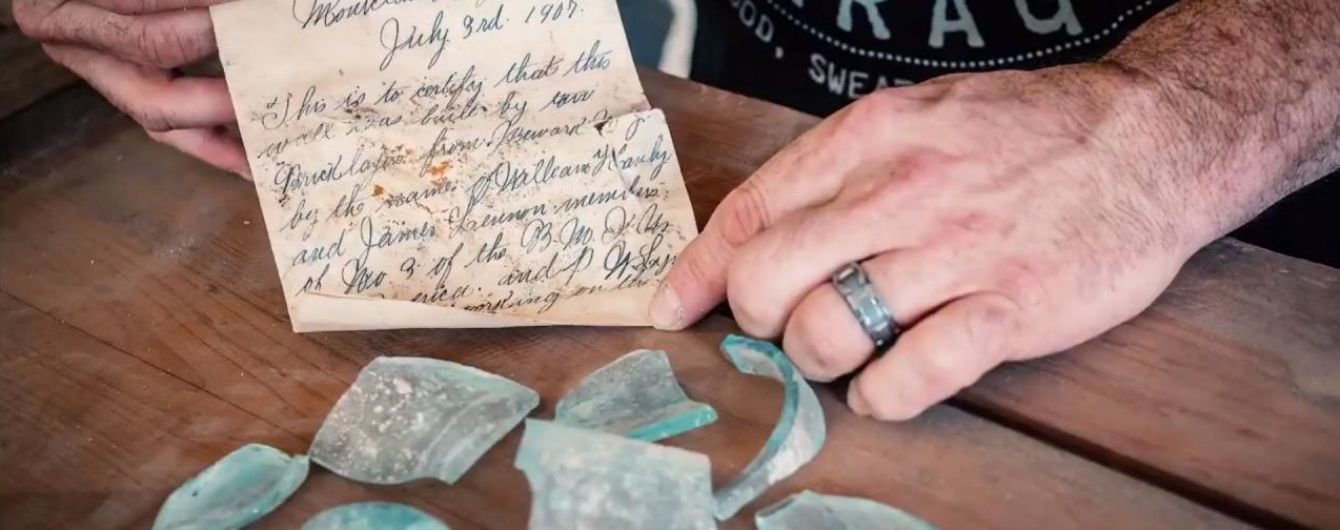 July 3rd. 1907.
This is to certify that this
wall was built by two
Bricklayers from Newark N. J.
by the names of William Hanly
and James Lennon members
of No 3 of the B. M. I. U.
erica. and P
working on the
RAG
OOD, SWEA